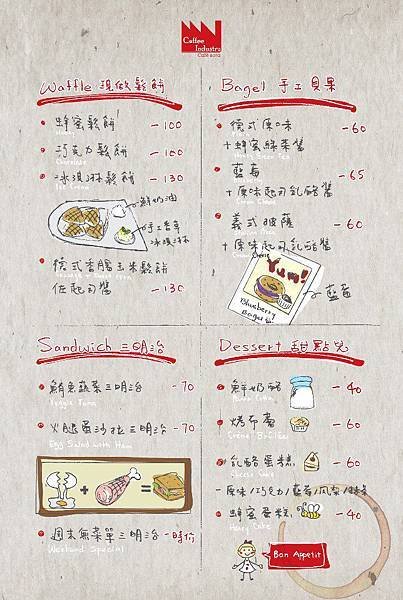 Coffee
Industry
Café 8013
Waffle 現做鬆餅
蜂蜜鬆餅 - 100
Honey
巧克力鬆餅 - 100
Chocolate
冰淇淋鬆餅 - 130
Ice Cream
鮮奶油
手工香草
冰淇淋
德式香腸玉米鬆餅
佐起司醬 - 130
Bagel 手工貝果
德式原味 - 60
+ 蜂蜜綠茶醬
Honey Green Tea
藍莓 - 65
+ 原味起司乳酪醬
Cream Cheese
義式披薩 - 60
+ 原味起司乳酪醬
Cream Cheese
Yum!
Blueberry
Bagel
藍莓
Sandwich 三明治
鮪魚蔬菜三明治 - 70
Veggie Tuna
火腿蛋沙拉三明治 - 70
Egg Salad with Ham
+ =
週末無菜單三明治 - 時價
Weekend Special
Dessert 甜點兒
鮮奶酪 - 40
Panna Cotta
烤布蕾 - 60
Creme Brulee
乳酪蛋糕 - 60
Cheese Cake
- 原味/巧克力/藍莓/
蜂蜜蛋糕 - 40
Honey Cake
Bon Appetit